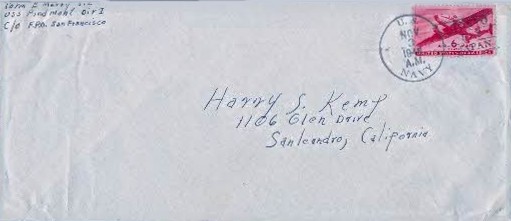 USS Piedmont Div I
C/o F.P.O. San Francisco
U.S.
NOV
A.M.
NAVY
6
Harry S. Kemp
1106 Glen Drive
Sanleandro, California